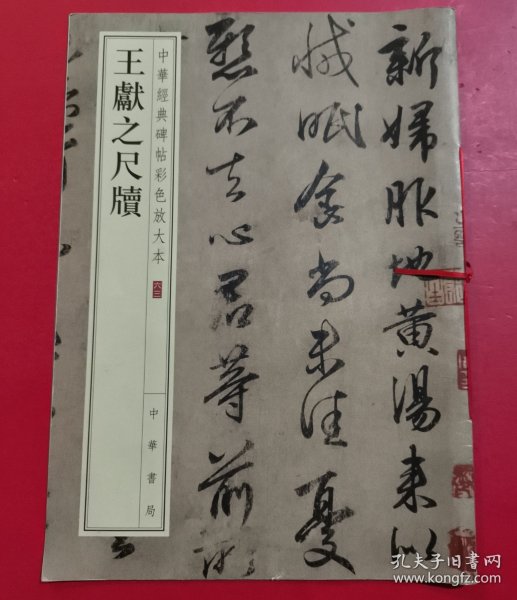 中華經典碑帖彩色放大本
六三
王獻之尺牘
中華書局
新婦服地黃湯來似
減眠食尚未佳憂
懸不去心君等前所
孔夫子旧书网
www.kongfz.com